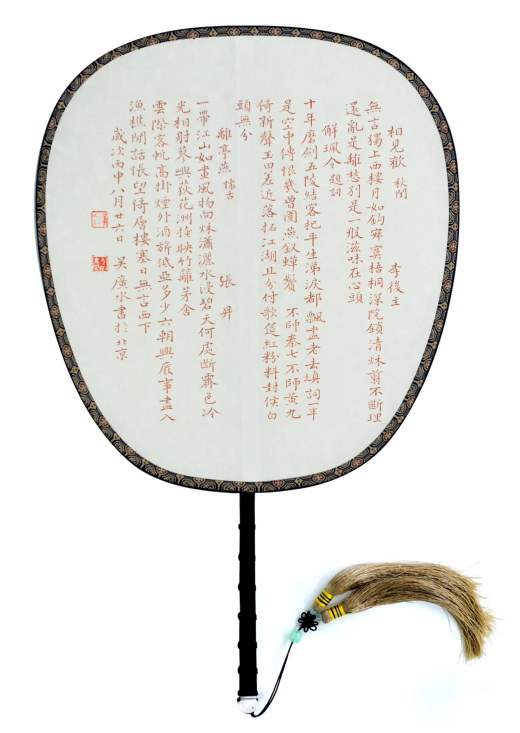 相見歡 秋閨 李後主
無言獨上西樓月如鉤寂寞梧桐深院鎖清秌翦不斷理
還亂是離愁別是一般滋味在心頭
解珮令 題詞
十年磨劍五陵結客把平生涕淚都飄盡老去填詞一半
是空中傳恨幾曾圍燕釵蟬鬢 不師秦七不師黃九
倚新聲玉田差近落拓江湖且分付歌筵紅粉料封侯白
頭無分
離亭燕 懷古 張昇
一帶江山如畫風物向秌瀟灑水浸碧天何處斷霽色冷
光相射蓼嶼荻花洲掩映竹籬茅舍
雲際客帆高掛煙外酒旂低亞多少六朝興廢事盡入
漁樵閒話悵望倚層樓寒日無言西下
歲次丙申八月廿六日 吴广水書於北京